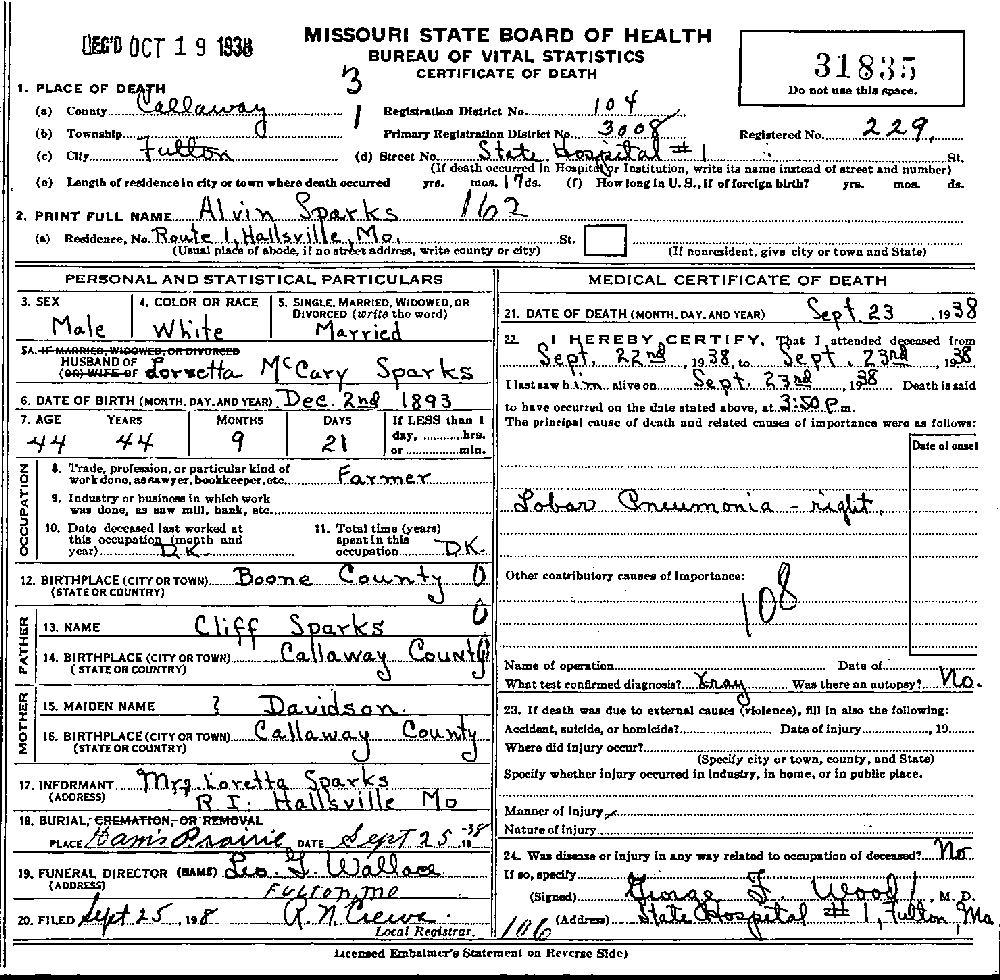 REC'D OCT 19 1938
MISSOURI STATE BOARD OF HEALTH
BUREAU OF VITAL STATISTICS
CERTIFICATE OF DEATH
31835
Do not use this space.
3
1
1. PLACE OF DEATH
(a) County Callaway Registration District No. 104
(b) Township Primary Registration District No. 3008 Registered No. 229
(c) City Fulton (d) Street No. State Hospital #1 St.
(If death occurred in Hospital or Institution, write its name instead of street and number)
(e) Length of residence in city or town where death occurred yrs. mos. 17 ds. (f) How long in U.S., if of foreign birth? yrs. mos. ds.
2. PRINT FULL NAME Alvin Sparks 162
(a) Residence, No. Route 1, Hallsville, Mo. St.
(Usual place of abode, if no street address, write county or city) (If nonresident, give city or town and State)
PERSONAL AND STATISTICAL PARTICULARS
3. SEX 4. COLOR OR RACE 5. SINGLE, MARRIED, WIDOWED, OR DIVORCED (write the word)
Male White Married
5A. IF MARRIED, WIDOWED, OR DIVORCED
HUSBAND OF
(OR) WIFE OF Lorretta McCary Sparks
6. DATE OF BIRTH (MONTH, DAY, AND YEAR) Dec. 2nd 1893
7. AGE YEARS MONTHS DAYS If LESS than 1
44 44 9 21 day, hrs.
or min.
OCCUPATION
8. Trade, profession, or particular kind of
work done, as sawyer, bookkeeper, etc. Farmer
9. Industry or business in which work
was done, as saw mill, bank, etc.
10. Date deceased last worked at
this occupation (month and
year) D.K.
11. Total time (years)
spent in this
occupation D.K.
12. BIRTHPLACE (CITY OR TOWN) Boone County 0
(STATE OR COUNTRY)
0
FATHER
13. NAME Cliff Sparks
14. BIRTHPLACE (CITY OR TOWN) Callaway County
(STATE OR COUNTRY)
MOTHER
15. MAIDEN NAME ? Davidson.
16. BIRTHPLACE (CITY OR TOWN) Callaway County
(STATE OR COUNTRY)
17. INFORMANT Mrs. Loretta Sparks
(ADDRESS) R I. Hallsville Mo
18. BURIAL, CREMATION, OR REMOVAL
PLACE Harris Prairie DATE Sept 25 -38
19. FUNERAL DIRECTOR (NAME) Wallace
(ADDRESS) Fulton, Mo
20. FILED Sept 25, 198 R. N. Crews.
Local Registrar.
MEDICAL CERTIFICATE OF DEATH
21. DATE OF DEATH (MONTH, DAY, AND YEAR) Sept 23, 1938
22. I HEREBY CERTIFY, That I attended deceased from
Sept. 22nd, 1938, to Sept. 23rd, 1938
I last saw him alive on Sept. 23rd, 1938 Death is said
to have occurred on the date stated above, at 3:50 P.m.
The principal cause of death and related causes of importance were as follows:
Date of onset
Lobar Pneumonia - right.
Other contributory causes of importance:
108
Name of operation Date of
What test confirmed diagnosis? Xray Was there an autopsy? No.
23. If death was due to external causes (violence), fill in also the following:
Accident, suicide, or homicide? Date of injury , 19
Where did injury occur?
(Specify city or town, county, and State)
Specify whether injury occurred in industry, in home, or in public place.
Manner of injury
Nature of injury
24. Was disease or injury in any way related to occupation of deceased? No
If so, specify
(Signed) George F. Wood, M. D.
106 (Address) State Hospital #1, Fulton, Mo
Licensed Embalmer's Statement on Reverse Side)